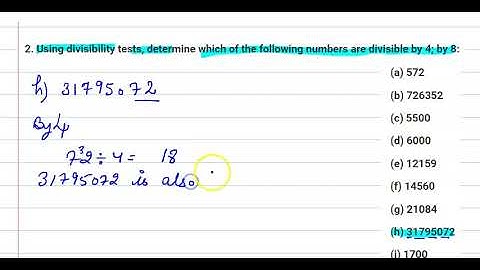 2. Using divisibility tests, determine which of the following numbers are divisible by 4; by 8:
(a) 572
(b) 726352
(c) 5500
(d) 6000
(e) 12159
(f) 14560
(g) 21084
(h) 31795072
(i) 1700
h) 31795072
By 4
7³2 ÷ 4 = 18
31795072 is also